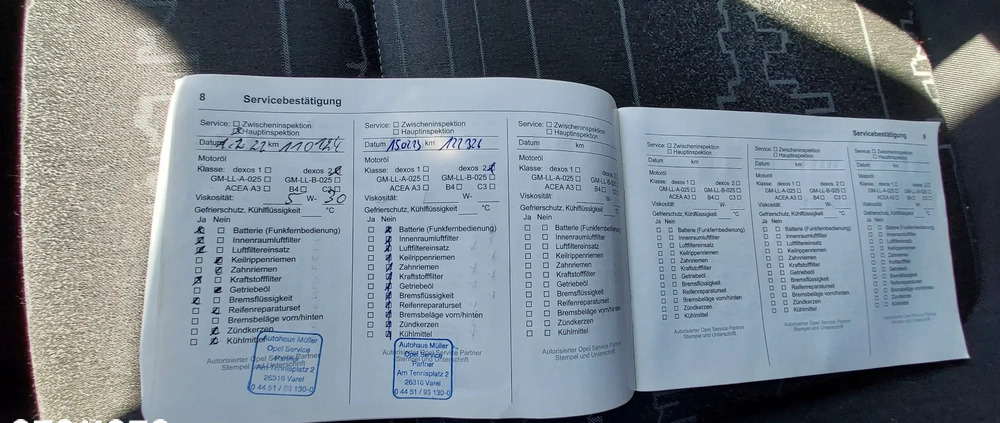 8 Servicebestätigung
Service: ☐ Zwischeninspektion
☒ Hauptinspektion
Datum km
Motoröl
Klasse: dexos 1 ☐ dexos 2 ☒
GM-LL-A-025 ☐ GM-LL-B-025 ☐
ACEA A3 ☐ B4 ☐ C3
Viskosität: 5 W- 30
Gefrierschutz, Kühlflüssigkeit °C
Ja Nein
☒ ☐ Batterie (Funkfernbedienung)
☒ ☐ Innenraumluftfilter
☒ ☐ Luftfiltereinsatz
☐ ☒ Keilrippenriemen
☐ ☒ Zahnriemen
☒ ☐ Kraftstofffilter
☐ ☒ Getriebeöl
☒ ☐ Bremsflüssigkeit
☐ ☒ Reifenreparaturset
Bremsbeläge vorn/hinten
☐ ☒ Zündkerzen
☐ ☒ Kühlmittel
Autorisierter Opel Service Partner
Stempel und Unterschrift
Autohaus Müller
Opel Service
Partner
Am Tennisplatz 2
26316 Varel
0 44 51 / 93 130-0
Service: ☐ Zwischeninspektion
☐ Hauptinspektion
Datum km
Motoröl
Klasse: dexos 1 ☐ dexos 2 ☒
GM-LL-A-025 ☐ GM-LL-B-025 ☐
ACEA A3 ☐ B4 ☐ C3 ☐
Viskosität: W-
Gefrierschutz, Kühlflüssigkeit °C
Ja Nein
☐ ☒ Batterie (Funkfernbedienung)
☐ ☒ Innenraumluftfilter
☐ ☒ Luftfiltereinsatz
☐ ☒ Keilrippenriemen
☐ ☒ Zahnriemen
☐ ☒ Kraftstofffilter
☐ ☒ Getriebeöl
☐ ☒ Bremsflüssigkeit
☐ ☒ Reifenreparaturset
☐ ☒ Bremsbeläge vorn/hinten
☐ ☒ Zündkerzen
☐ ☒ Kühlmittel
Autorisierter Opel Service Partner
Stempel und Unterschrift
Autohaus Müller
Opel Service
Partner
Am Tennisplatz 2
26316 Varel
0 44 51 / 93 130-0
Service: ☐ Zwischeninspektion
☐ Hauptinspektion
Datum km
Motoröl
Klasse: dexos 1 ☐ dexos 2 ☐
GM-LL-A-025 ☐ GM-LL-B-025 ☐
ACEA A3 ☐ B4 ☐ C3 ☐
Viskosität: W-
Gefrierschutz, Kühlflüssigkeit °C
Ja Nein
☐ ☐ Batterie (Funkfernbedienung)
☐ ☐ Innenraumluftfilter
☐ ☐ Luftfiltereinsatz
☐ ☐ Keilrippenriemen
☐ ☐ Zahnriemen
☐ ☐ Kraftstofffilter
☐ ☐ Getriebeöl
☐ ☐ Bremsflüssigkeit
☐ ☐ Reifenreparaturset
☐ ☐ Bremsbeläge vorn/hinten
☐ ☐ Zündkerzen
☐ ☐ Kühlmittel
Autorisierter Opel Service Partner
Stempel und Unterschrift
Servicebestätigung 9
Service: ☐ Zwischeninspektion
☐ Hauptinspektion
Datum km
Motoröl
Klasse: dexos 1 ☐ dexos 2 ☐
GM-LL-A-025 ☐ GM-LL-B-025 ☐
ACEA A3 ☐ B4 ☐ C3 ☐
Viskosität: W-
Gefrierschutz, Kühlflüssigkeit °C
Ja Nein
☐ ☐ Batterie (Funkfernbedienung)
☐ ☐ Innenraumluftfilter
☐ ☐ Luftfiltereinsatz
☐ ☐ Keilrippenriemen
☐ ☐ Zahnriemen
☐ ☐ Kraftstofffilter
☐ ☐ Getriebeöl
☐ ☐ Bremsflüssigkeit
☐ ☐ Reifenreparaturset
☐ ☐ Bremsbeläge vorn/hinten
☐ ☐ Zündkerzen
☐ ☐ Kühlmittel
Autorisierter Opel Service Partner
Stempel und Unterschrift
Service: ☐ Zwischeninspektion
☐ Hauptinspektion
Datum km
Motoröl
Klasse: dexos 1 ☐ dexos 2 ☐
GM-LL-A-025 ☐ GM-LL-B-025 ☐
ACEA A3 ☐ B4 ☐ C3 ☐
Viskosität: W-
Gefrierschutz, Kühlflüssigkeit °C
Ja Nein
☐ ☐ Batterie (Funkfernbedienung)
☐ ☐ Innenraumluftfilter
☐ ☐ Luftfiltereinsatz
☐ ☐ Keilrippenriemen
☐ ☐ Zahnriemen
☐ ☐ Kraftstofffilter
☐ ☐ Getriebeöl
☐ ☐ Bremsflüssigkeit
☐ ☐ Reifenreparaturset
☐ ☐ Bremsbeläge vorn/hinten
☐ ☐ Zündkerzen
☐ ☐ Kühlmittel
Autorisierter Opel Service Partner
Stempel und Unterschrift
Service: ☐ Zwischeninspektion
☐ Hauptinspektion
Datum km
Motoröl
Klasse: dexos 1 ☐ dexos 2 ☐
GM-LL-A-025 ☐ GM-LL-B-025 ☐
ACEA A3 ☐ B4 ☐ C3 ☐
Viskosität: W-
Gefrierschutz, Kühlflüssigkeit °C
Ja Nein
☐ ☐ Batterie (Funkfernbedienung)
☐ ☐ Innenraumluftfilter
☐ ☐ Luftfiltereinsatz
☐ ☐ Keilrippenriemen
☐ ☐ Zahnriemen
☐ ☐ Kraftstofffilter
☐ ☐ Getriebeöl
☐ ☐ Bremsflüssigkeit
☐ ☐ Reifenreparaturset
☐ ☐ Bremsbeläge vorn/hinten
☐ ☐ Zündkerzen
☐ ☐ Kühlmittel
Autorisierter Opel Service Partner
Stempel und Unterschrift